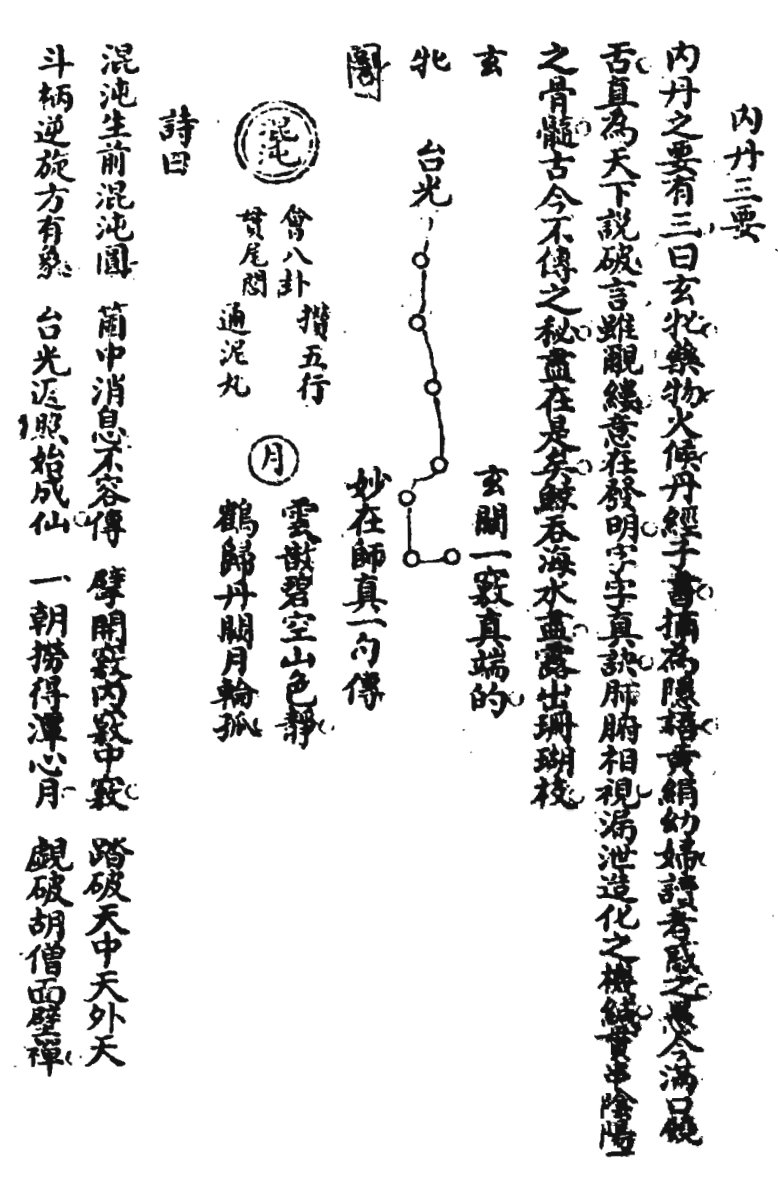 內丹三要
內丹之要有三曰玄牝藥物火候丹經子書摘為隱語黃絹幼婦讀者惑之愚今滿口饒
舌真為天下說破言雖覼縷意在發明字字真訣肺腑相視漏泄造化之機緘貫串陰陽
之骨髓古今不傳之秘盡在是矣鯨吞海水盡露出珊瑚枝
玄牝圖
台光
玄關一竅真端的
妙在師真一句傳
混沌
會八卦 攢五行
貫尾閭 通泥丸
月
雲散碧空山色靜
鶴歸丹闕月輪孤
詩曰
混沌生前混沌圓 箇中消息不容傳 擘開竅內竅中竅 踏破天中天外天
斗柄逆旋方有象 台光返照始成仙 一朝撈得潭心月 覷破胡僧面壁禪